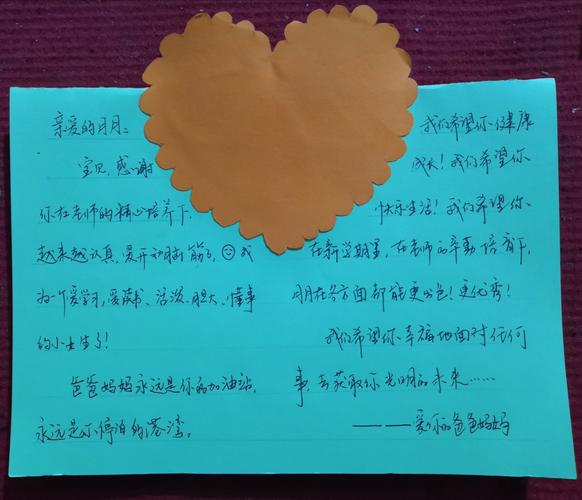 亲爱的月月:
宝贝,感谢
你在老师的精心培养下,
越来越认真,爱开动脑筋了,成
为一个爱学习,爱读书、活泼、胆大、懂事
的小女生了!
爸爸妈妈永远是你的加油站,
永远是你停泊的港湾。
我们希望你健康
成长!我们希望你
快乐生活!我们希望你
在新学期里,在老师的辛勤培育下,
月月在各方面都能更出色!更优秀!
我们希望你幸福地面对任何
事,去获取你光明的未来……
——爱你的爸爸妈妈